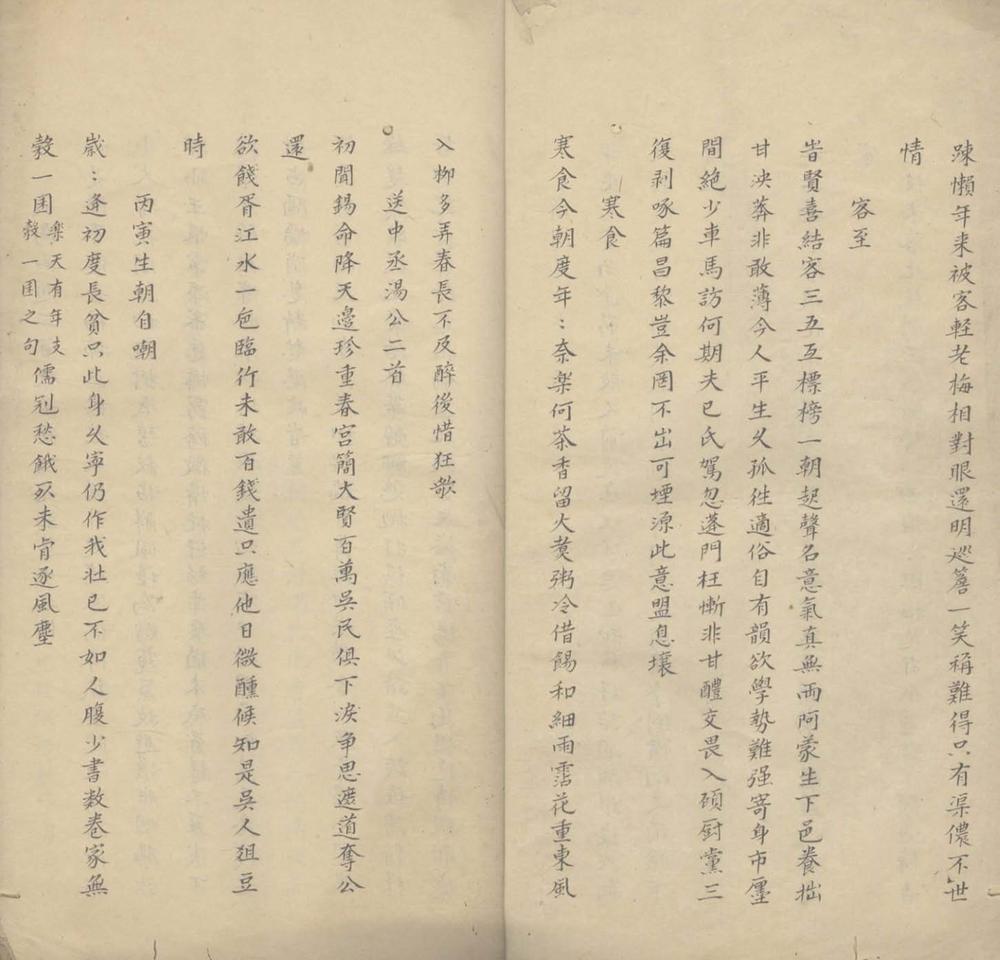 踈懶年来被客輕老梅相對眼還明巡簷一笑稱難得只有渠儂不世
情
客至
昔賢喜結客三五互標榜一朝起聲名意氣真無兩阿蒙生下邑養拙
甘泱莽非敢薄今人平生乆孤徃適俗自有韻欲學勢難强寄身市廛
間絶少車馬訪何期夫已氏駕忽蓬門枉慚非甘醴交畏入碩厨黨三
復剥啄篇昌黎豈余罔不出可堙源此意盟息壤
寒食
寒食今朝度年：奈樂何茶香留火煑粥冷借餳和細雨霑花重東風
入栁多弄春長不及醉後惜狂歌
送中丞湯公二首
初聞錫命降天邊珍重春宫簡大賢百萬吳民俱下淚争思遮道奪公
還
欲餞胥江水一巵臨行未敢百錢遺只應他日微醺候知是吳人爼豆
時
丙寅生朝自嘲
歳：逢初度長貧只此身乆寧仍作我壮已不如人腹少書数卷家無
榖一囷樂天有年支榖一囷之句儒冠愁餓死未肯逐風塵